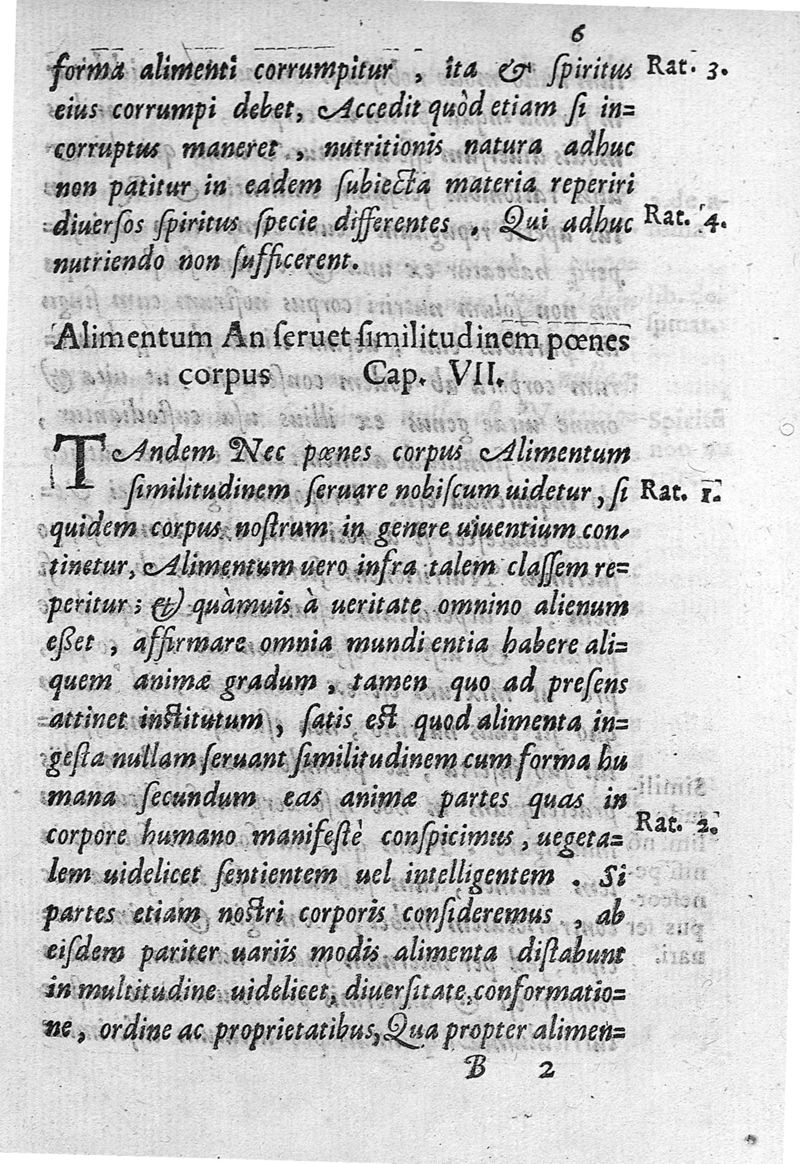 6
forma alimenti corrumpitur , ita & ſpiritus Rat. 3.
eius corrumpi debet, Accedit quòd etiam ſi in=
corruptus maneret , nutritionis natura adhuc
non patitur in eadem ſubiecta materia reperiri
diuerſos ſpiritus ſpecie differentes . Qui adhuc Rat. 4.
nutriendo non ſufficerent.
Alimentum An ſeruet ſimilitudinem pœnes
corpus Cap. VII.
TAndem Nec pœnes corpus Alimentum
ſimilitudinem ſeruare nobiſcum uidetur, ſi Rat. 1.
quidem corpus noſtrum in genere uiuentium con-
tinetur, Alimentum uero infra talem claſſem re=
peritur; & quàmuis à ueritate omnino alienum
eßet , affirmare omnia mundi entia habere ali=
quem animæ gradum , tamen quo ad preſens
attinet inſtitutum , ſatis eſt quod alimenta in=
geſta nullam ſeruant ſimilitudinem cum forma hu
mana ſecundum eas animæ partes quas in
corpore humano manifeſtè conſpicimus , uegeta= Rat. 2.
lem uidelicet ſentientem uel intelligentem . Si
partes etiam noſtri corporis conſideremus , ab
eiſdem pariter uariis modis alimenta diſtabunt
in multitudine uidelicet, diuerſitate, conformatio=
ne, ordine ac proprietatibus, Qua propter alimen=
B 2